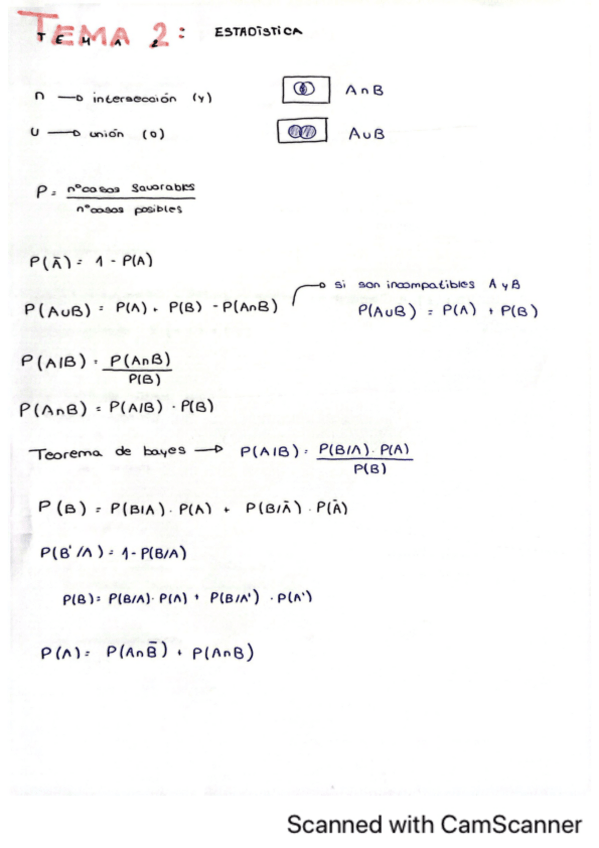 TEMA 2: ESTADÍSTICA
∩ → intersección (y) A∩B
∪ → unión (o) A∪B
P = nº casos favorables / nº casos posibles
P(Ā) = 1 - P(A)
P(A∪B) = P(A) + P(B) - P(A∩B) → si son incompatibles A y B
P(A∪B) = P(A) + P(B)
P(A/B) = P(A∩B) / P(B)
P(A∩B) = P(A/B) · P(B)
Teorema de bayes → P(A/B) = P(B/A) · P(A) / P(B)
P(B) = P(B/A) · P(A) + P(B/Ā) · P(Ā)
P(B'/A) = 1 - P(B/A)
P(B) = P(B/A) · P(A) + P(B/A') · P(A')
P(A) = P(A∩B̄) + P(A∩B)
Scanned with CamScanner